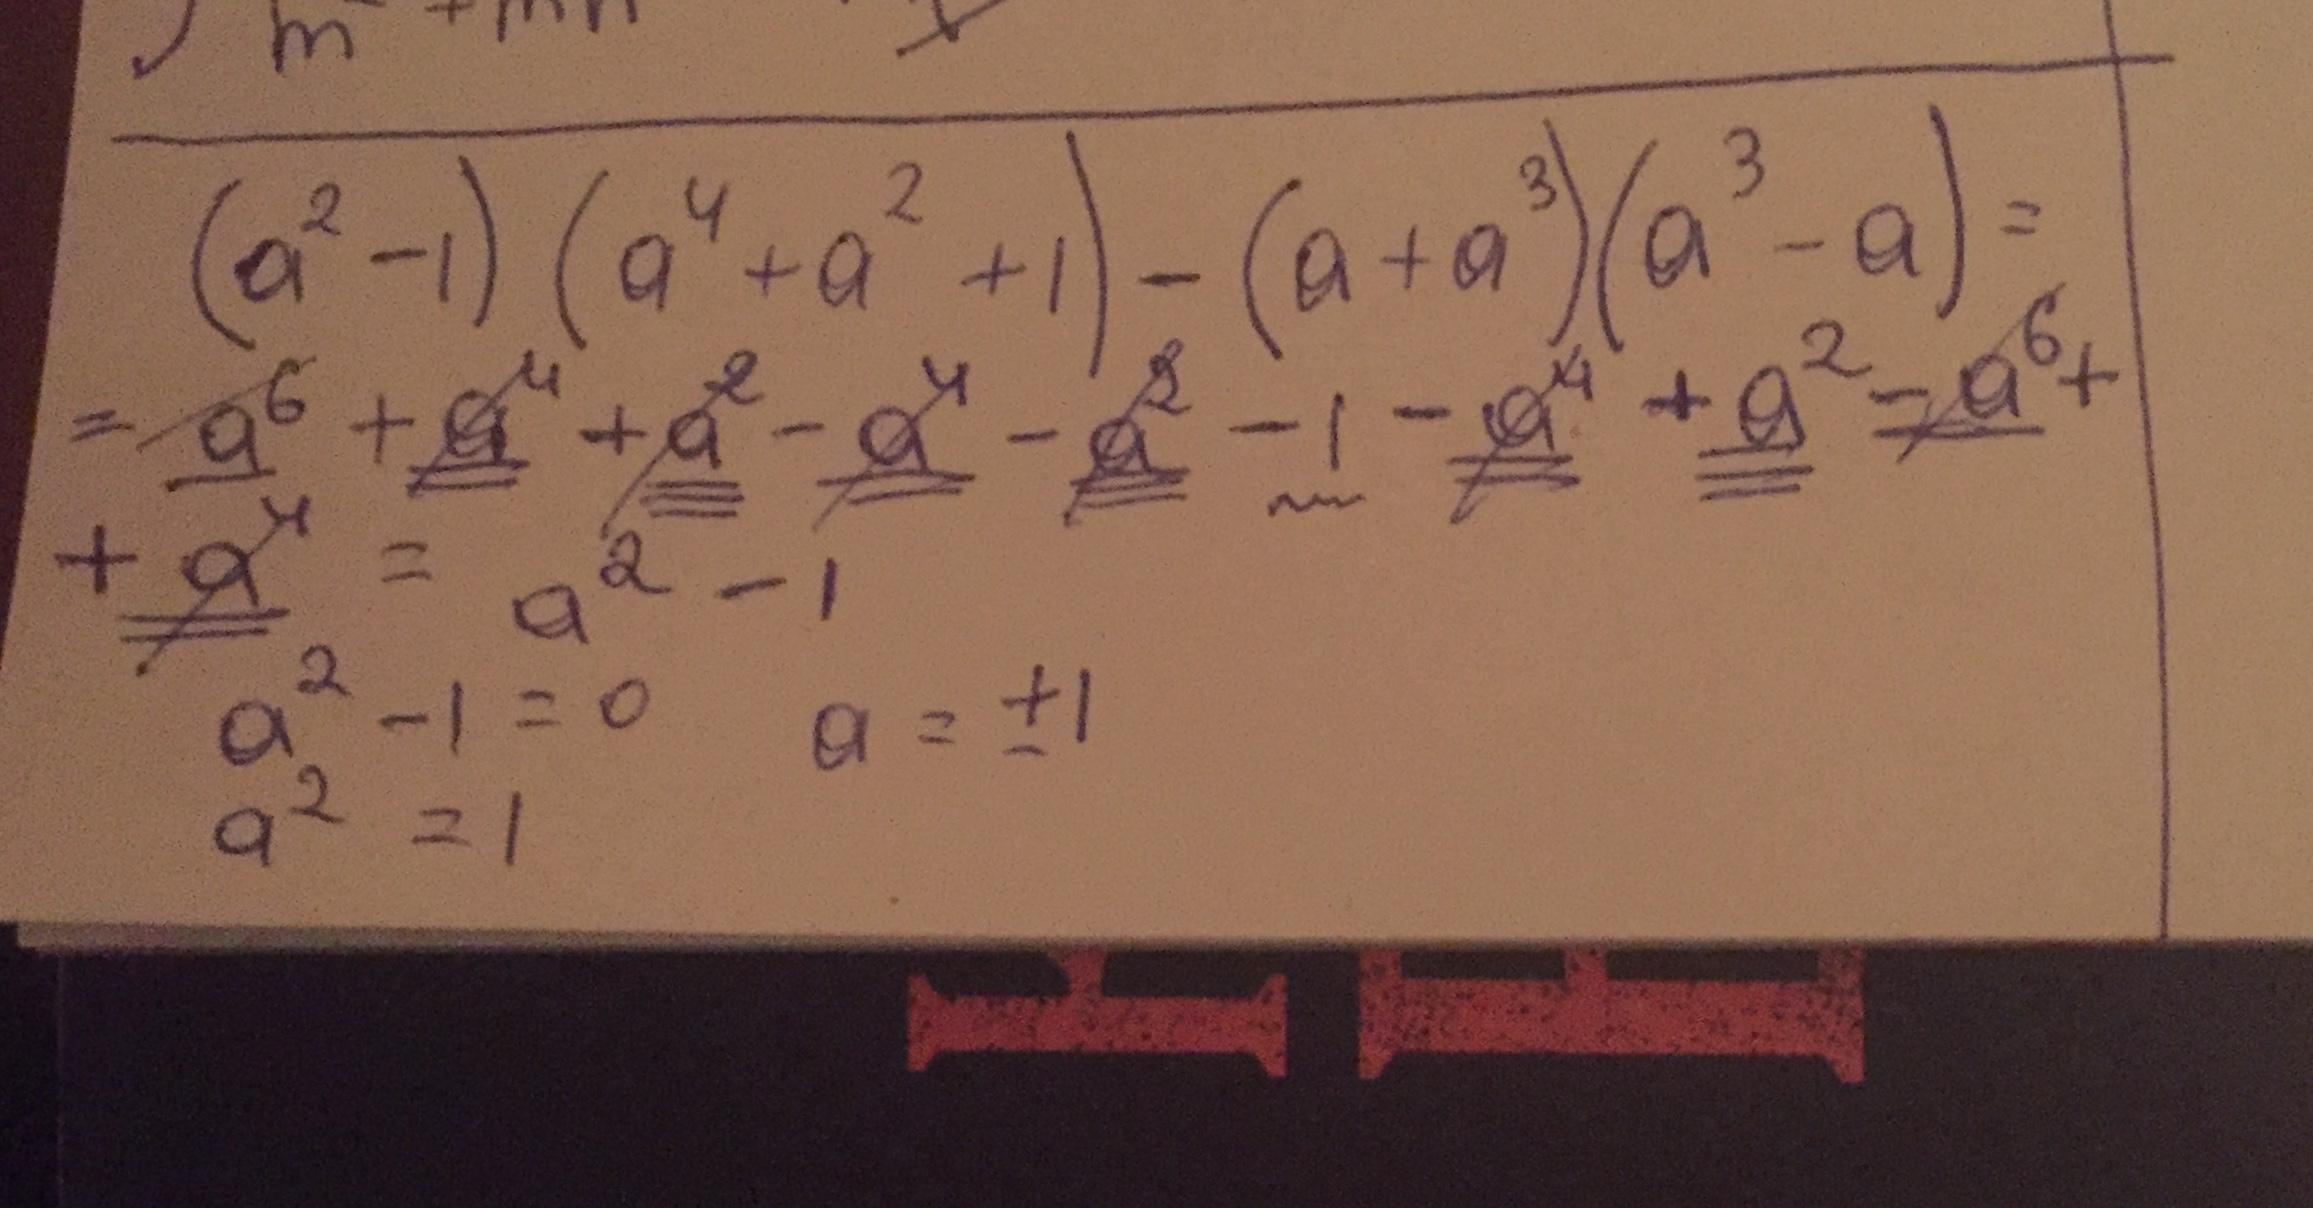 m² + mn
(a² - 1) (a⁴ + a² + 1) - (a + a³)(a³ - a) =
= a⁶ + a⁴ + a² - a⁴ - a² - 1 - a⁴ + a² - a⁶ +
+ a⁴ = a² - 1
a² - 1 = 0 a = ±1
a² = 1